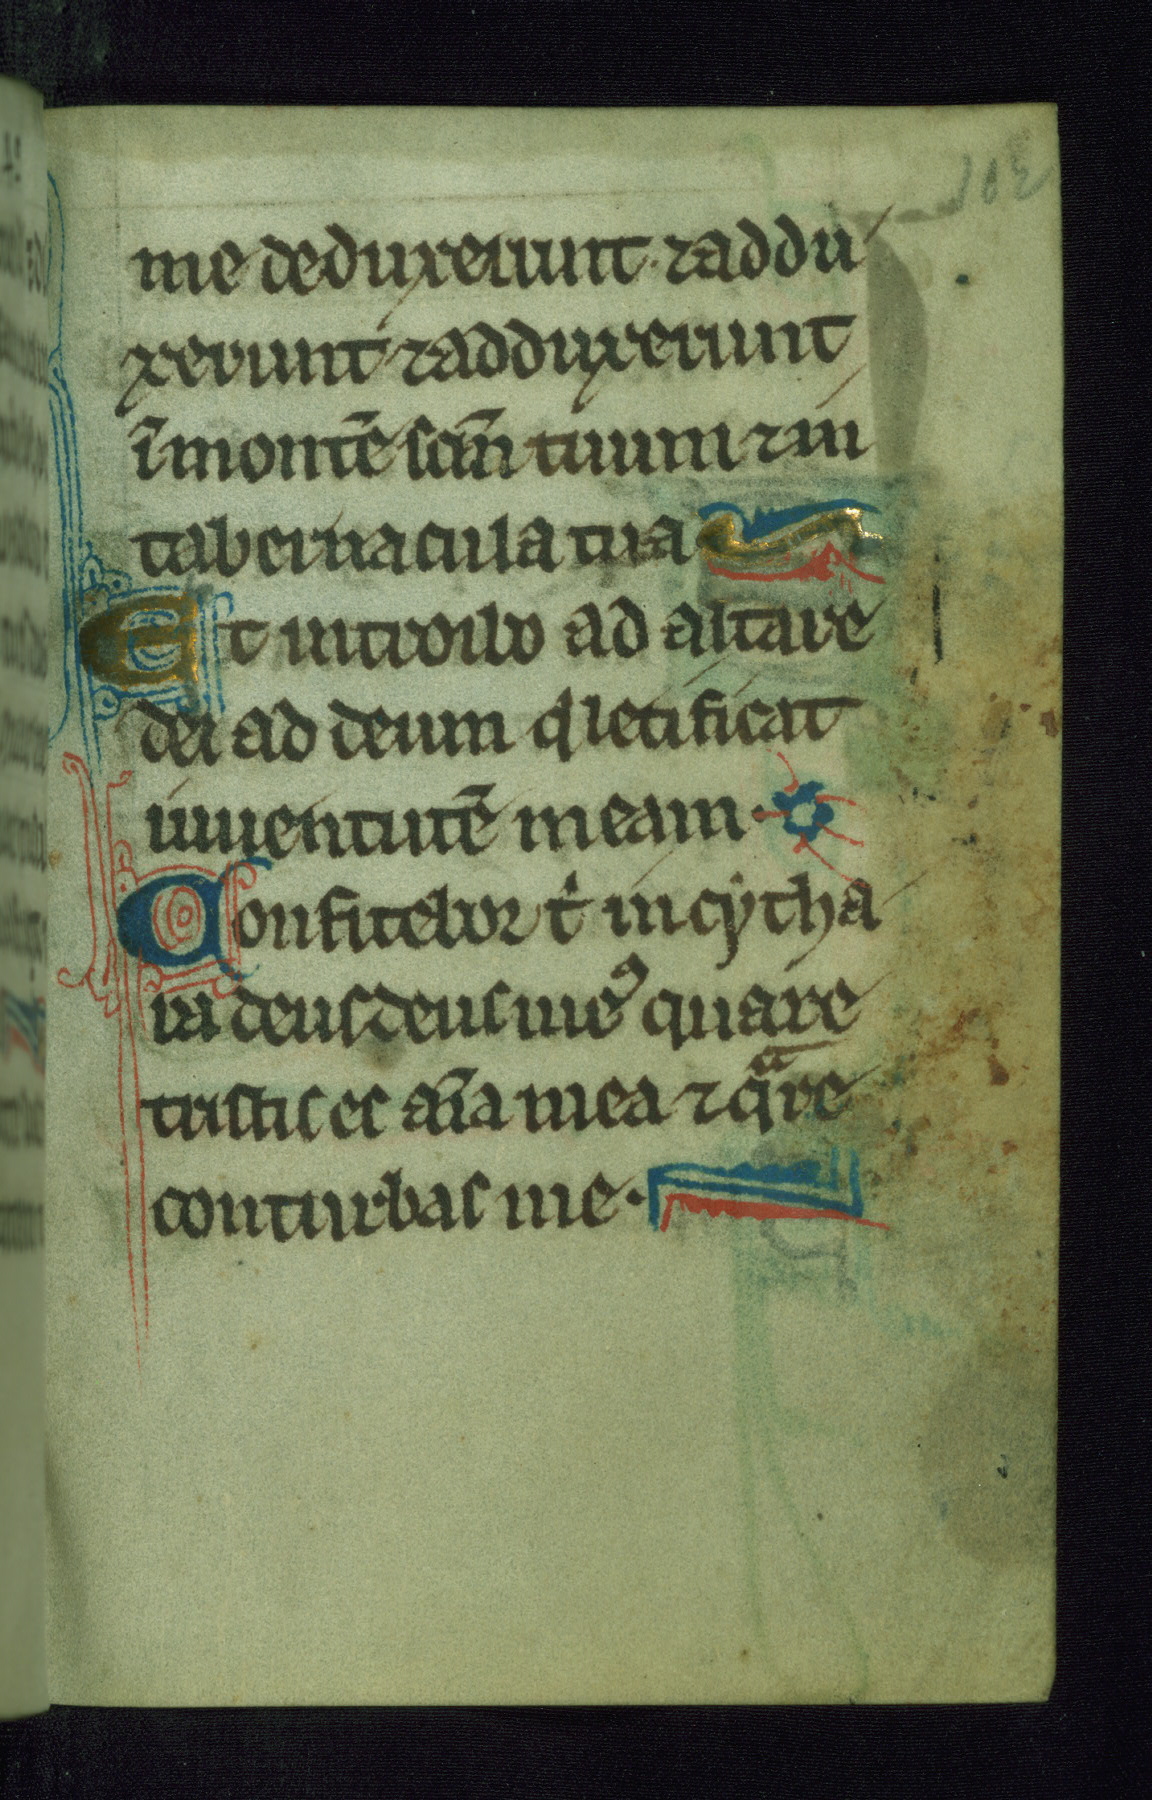 103
me deduxerunt· ⁊ addu
xerunt ⁊ adduxerunt
ī montē sc̄m tuum ⁊ in
tabernacula tua
Et introibo ad altare
dei ad deum q̇ letificat
iuuentutē meam·
Confitebor t̍ in cytha
ra deus deus meꝰ quare
tristis es aīa mea ⁊ qᵃre
conturbas me·